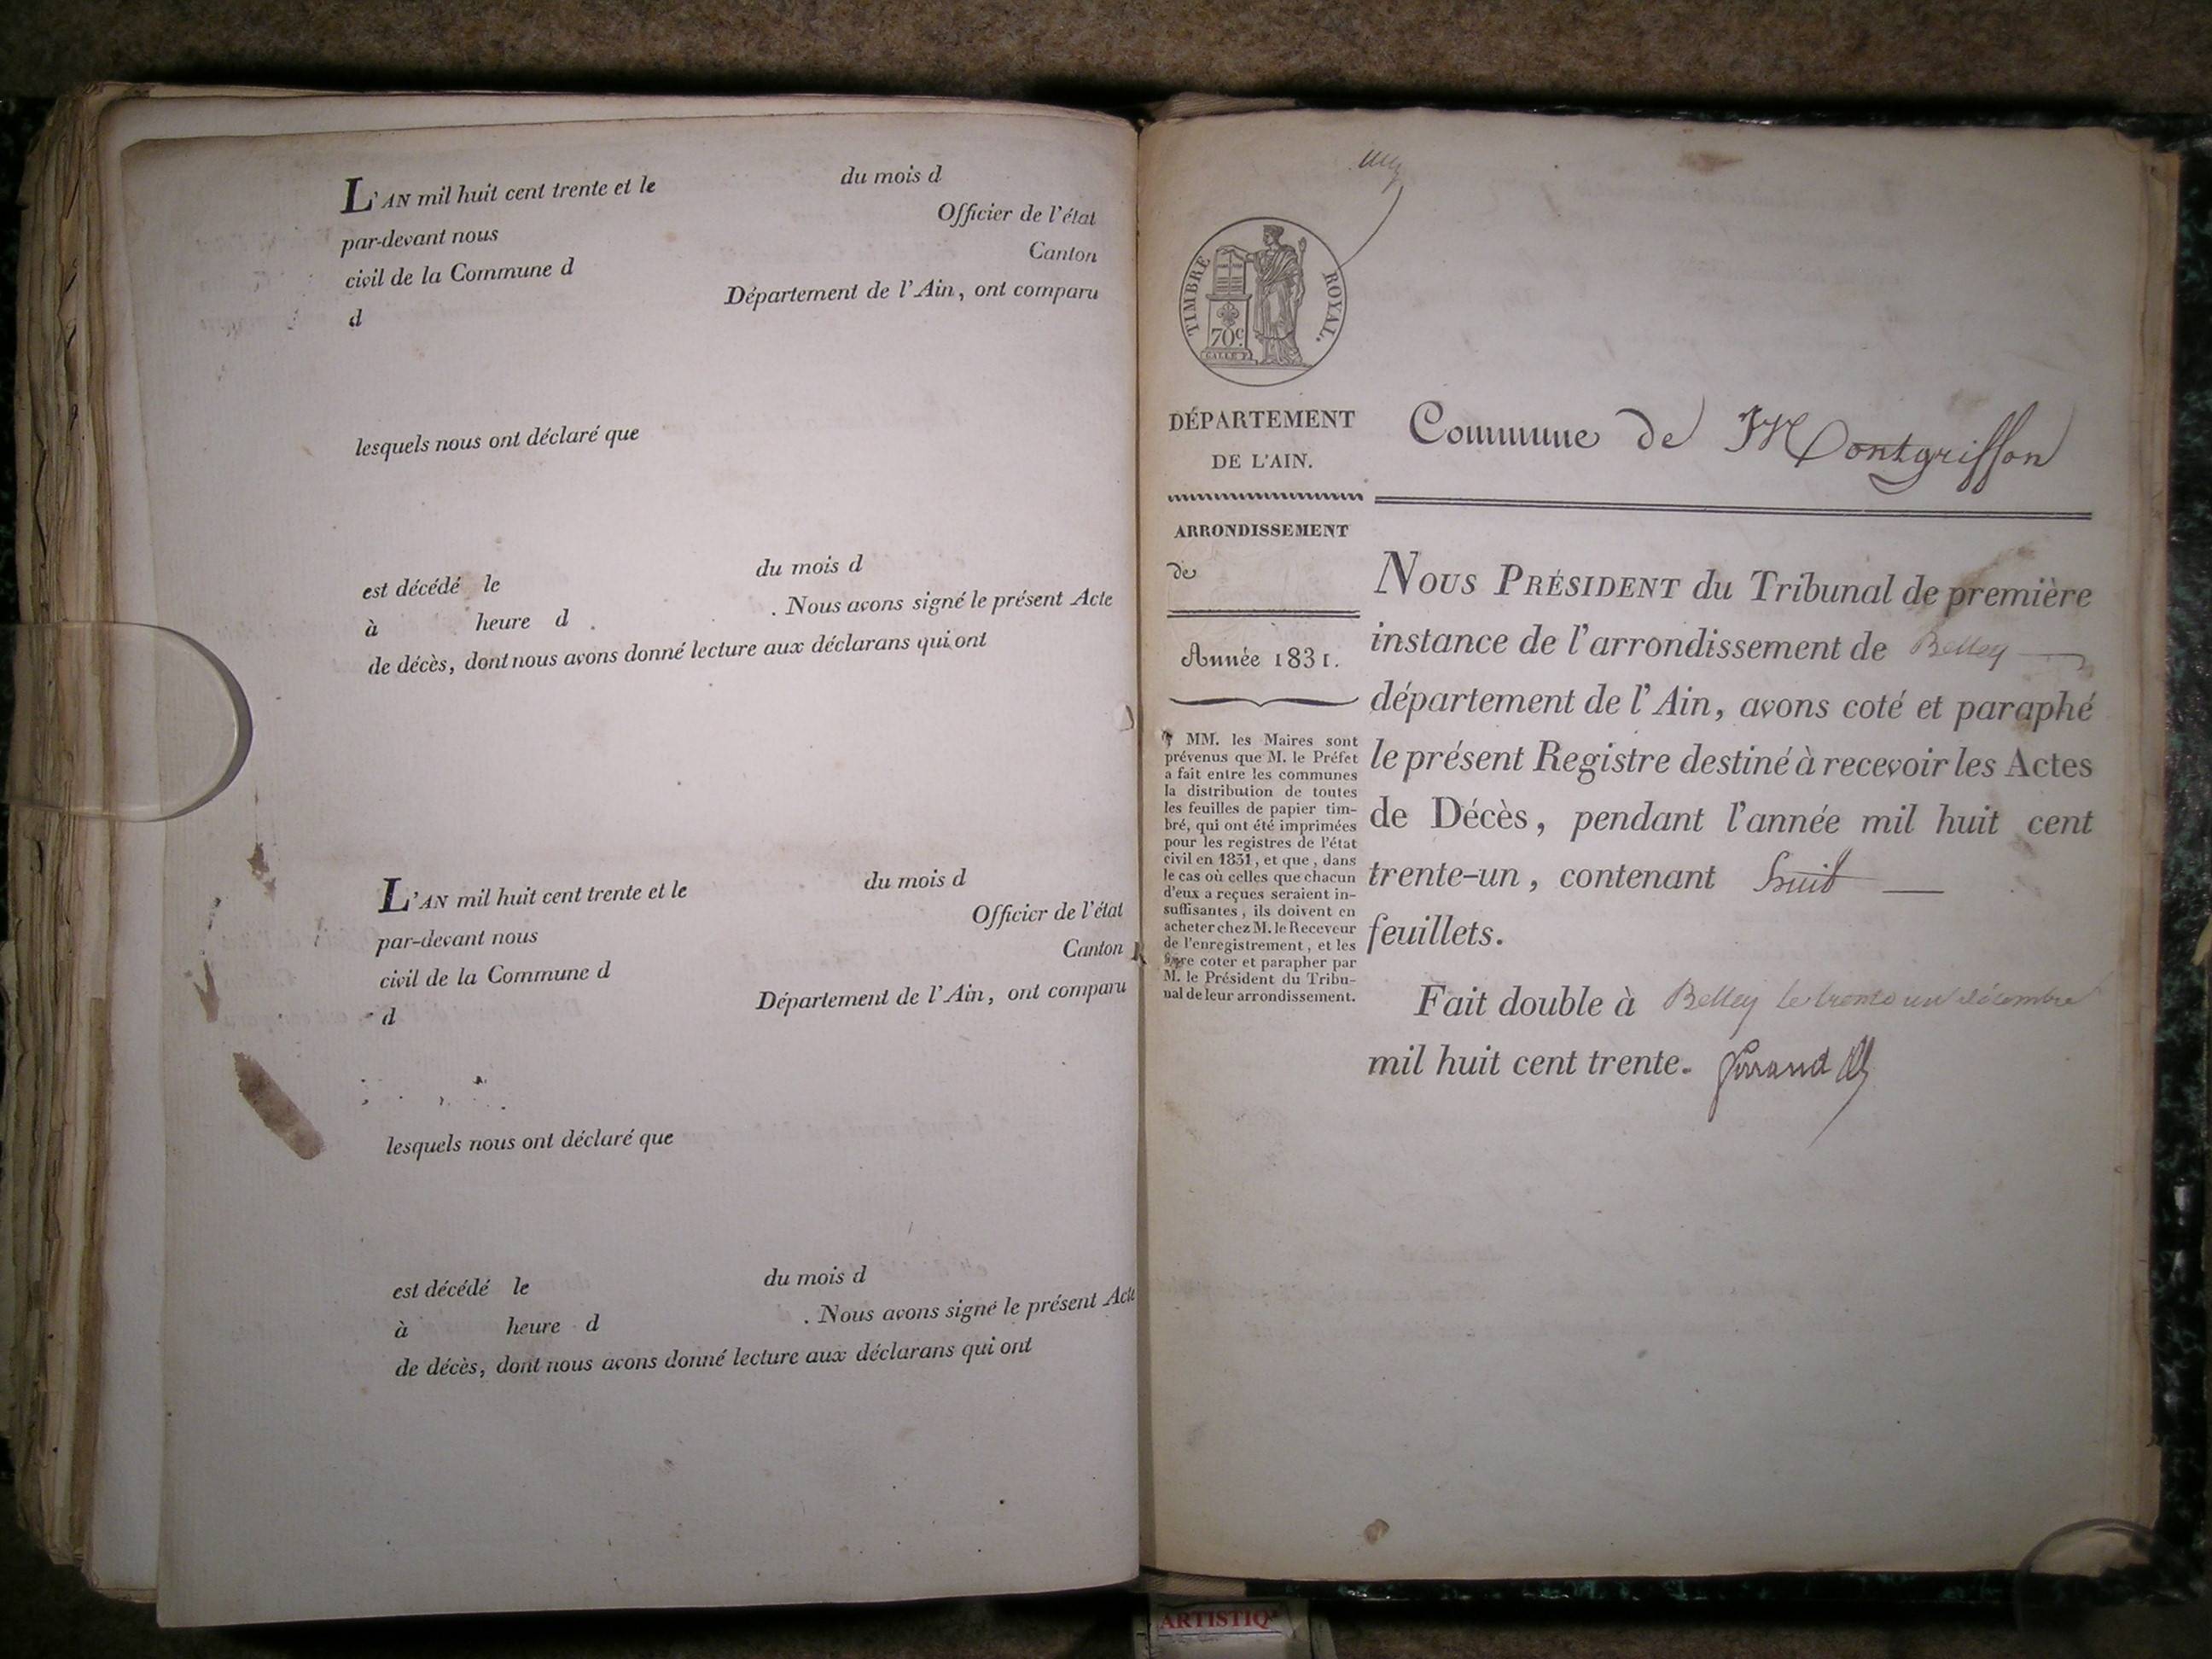 L'AN mil huit cent trente et le du mois d
par-devant nous Officier de l'état
civil de la Commune d Canton
d Département de l'Ain, ont comparu
lesquels nous ont déclaré que
est décédé le du mois d
à heure d . Nous avons signé le présent Acte
de décès, dont nous avons donné lecture aux déclarans qui ont
L'AN mil huit cent trente et le du mois d
par-devant nous Officier de l'état
civil de la Commune d Canton
d Département de l'Ain, ont comparu
lesquels nous ont déclaré que
est décédé le du mois d
à heure d . Nous avons signé le présent Acte
de décès, dont nous avons donné lecture aux déclarans qui ont
TIMBRE ROYAL.
70c
DÉPARTEMENT
DE L'AIN.
ARRONDISSEMENT
de
Année 1831.
MM. les Maires sont
prévenus que M. le Préfet
a fait entre les communes
la distribution de toutes
les feuilles de papier tim-
bré, qui ont été imprimées
pour les registres de l'état
civil en 1831, et que, dans
le cas où celles que chacun
d'eux a reçues seraient in-
suffisantes, ils doivent en
acheter chez M. le Receveur
de l'enregistrement, et les
faire coter et parapher par
M. le Président du Tribu-
nal de leur arrondissement.
Commune de Montgriffon
NOUS PRÉSIDENT du Tribunal de première
instance de l'arrondissement de Belley
département de l'Ain, avons coté et paraphé
le présent Registre destiné à recevoir les Actes
de Décès, pendant l'année mil huit cent
trente-un, contenant huit
feuillets.
Fait double à Belley le trente un décembre
mil huit cent trente.
ARTISTIQ